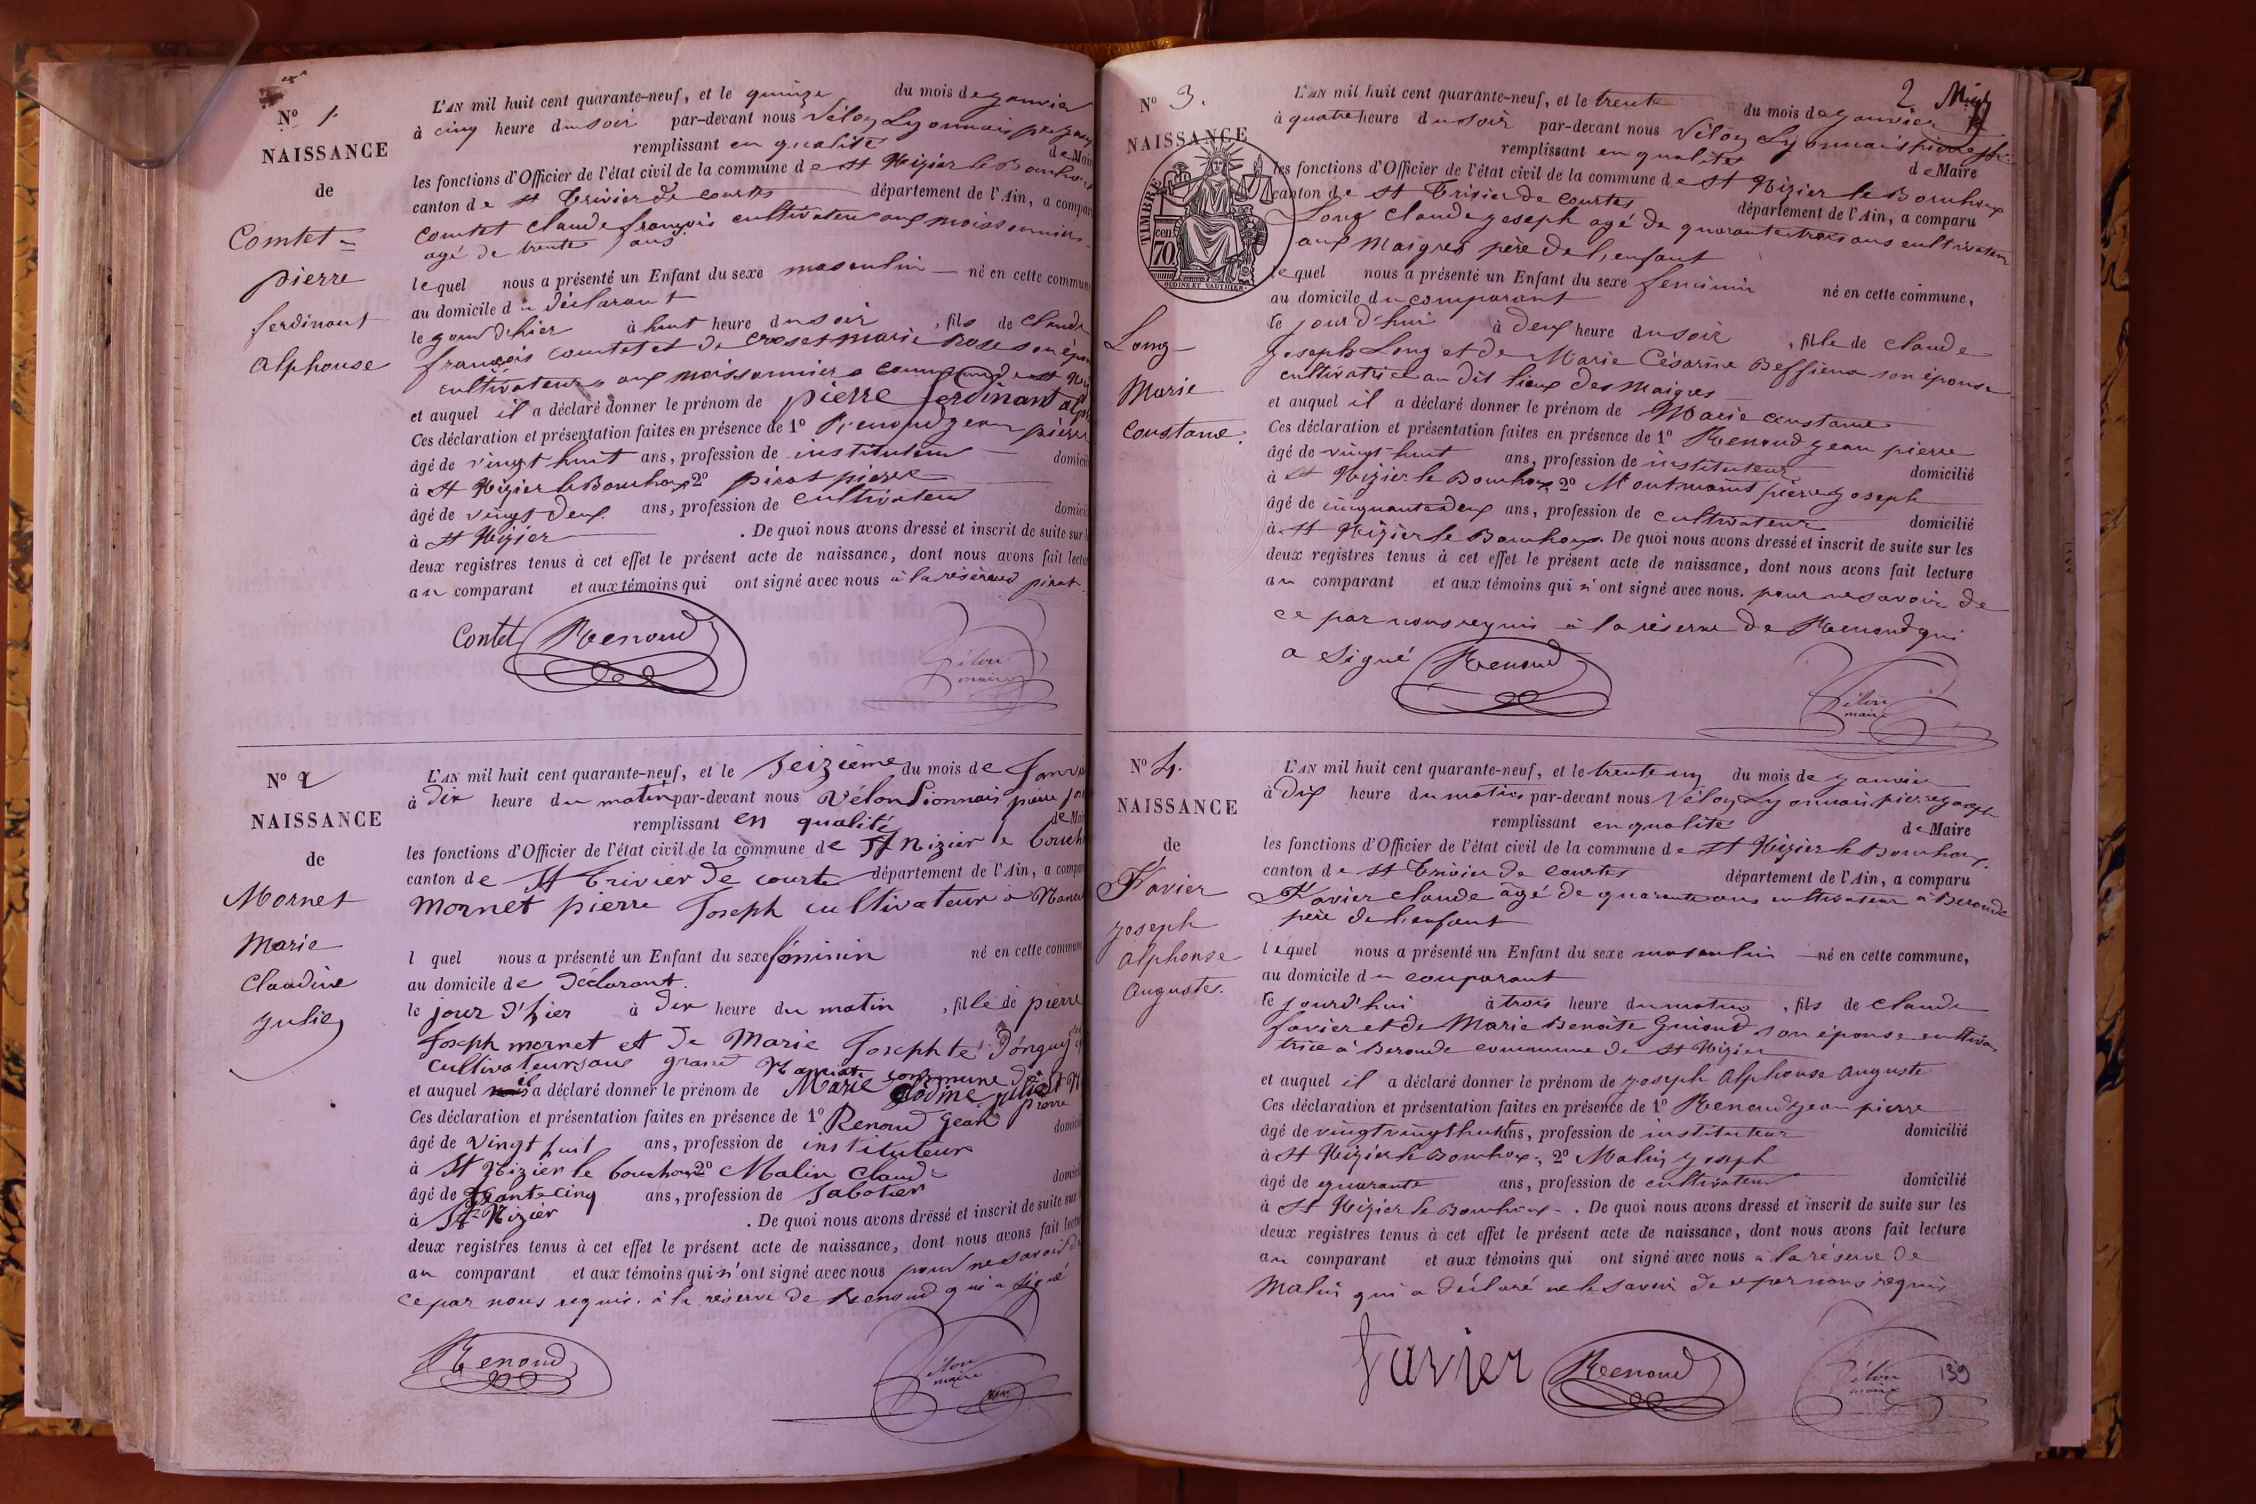 Nº 1.
NAISSANCE
de
Comtet
pierre
ferdinant
alphonse
L'AN mil huit cent quarante-neuf, et le quinze du mois de janvier
à cinq heure du soir par-devant nous Vélon Lyonnais
remplissant en qualité de Mai
les fonctions d'Officier de l'état civil de la commune de St Nizier le Bouchoux
canton de St Trivier de Courtes département de l'Ain, a compar
Comtet claude françois cultivateur aux moissonniers
agé de trente ans
lequel nous a présenté un Enfant du sexe masculin né en cette commune
au domicile du déclarant
le jour d'hier à huit heure du soir, fils de claude
françois comtet et de Croset marie Rose son épou
cultivateurs aux moissonniers commune de st Niz
et auquel il a déclaré donner le prénom de pierre ferdinant alph
Ces déclaration et présentation faites en présence de 1º Renoud jean pierre
âgé de vingt huit ans, profession de instituteur domicil
à St Nizier le Bouchoux 2º pirat pierre
âgé de vingt deux ans, profession de cultivateur domici
à St Nizier. De quoi nous avons dressé et inscrit de suite sur l
deux registres tenus à cet effet le présent acte de naissance, dont nous avons fait lectu
au comparant et aux témoins qui ont signé avec nous à la réserve de pirat
Contet Renoud Vélon
maire
Nº 2
NAISSANCE
de
Mornet
Marie
Claudine
Julie
L'AN mil huit cent quarante-neuf, et le seizième du mois de Janvi
à dix heure du matin par-devant nous Vélon Lionnais pierre jo
remplissant en qualité de Mai
les fonctions d'Officier de l'état civil de la commune de St Nizier le bouch
canton de St Trivier de courte département de l'Ain, a compa
Mornet pierre Joseph cultivateur à
l quel nous a présenté un Enfant du sexe féminin né en cette commune
au domicile de Déclarant.
le jour d'hier à dix heure du matin, fille de pierre
Joseph mornet et de Marie Josephte
cultivateurs au grand commune de St N
et auquel il a déclaré donner le prénom de Marie julie
Ces déclaration et présentation faites en présence de 1º Renoud Jean pierre
âgé de vingt huit ans, profession de instituteur domici
à St Nizier le bouchoux 2º Malin Claude
âgé de trante cinq ans, profession de Sabotier domici
à St Nizier. De quoi nous avons dressé et inscrit de suite sur
deux registres tenus à cet effet le présent acte de naissance, dont nous avons fait lectu
au comparant et aux témoins qui n'ont signé avec nous pour ne savoir de
ce par nous requis. à la réserve de Renoud qui a signé
Renoud Vélon
maire
2. 
Nº 3.
NAISSANCE
TIMBRE
70
cen
OUDINE ET VAUTHIER
Long
Marie
Constance.
L'AN mil huit cent quarante-neuf, et le trente du mois de janvier
à quatre heure du soir par-devant nous Vélon Lyonnais pierre jh
remplissant en qualité de Maire
les fonctions d'Officier de l'état civil de la commune de St Nizier le Bouchoux
canton de St Trivier de Courtes département de l'Ain, a comparu
Long Claude joseph agé de quarante trois ans cultivateur
aux Maigres père de l'enfant
lequel nous a présenté un Enfant du sexe feminin né en cette commune,
au domicile du comparant
le jour d'hui à deux heure du soir, fille de Claude
joseph Long et de Marie Césarine son épouse
cultivatrice au dit lieux des Maigres
et auquel il a déclaré donner le prénom de Marie constance
Ces déclaration et présentation faites en présence de 1º Renoud jean pierre
âgé de vingt huit ans, profession de instituteur domicilié
à St Nizier le Bouhoux 2º pierre joseph
âgé de cinquante deux ans, profession de cultivateur domicilié
à St Nizier le Bouhoux. De quoi nous avons dressé et inscrit de suite sur les
deux registres tenus à cet effet le présent acte de naissance, dont nous avons fait lecture
au comparant et aux témoins qui n'ont signé avec nous. pour ne savoir de
ce par nous requis à la réserve de Renoud qui
a signé Renoud Vélon
maire
Nº 4.
NAISSANCE
de
Favier
joseph
alphonse
auguste.
L'AN mil huit cent quarante-neuf, et le trente un du mois de janvier
à dix heure du matin par-devant nous Vélon Lyonnais pierre joseph
remplissant en qualité de Maire
les fonctions d'Officier de l'état civil de la commune de St Nizier le Bouhoux
canton de St Trivier de Courtes département de l'Ain, a comparu
Favier claude âgé de quarante ans cultivateur à Beronde
père de l'enfant
lequel nous a présenté un Enfant du sexe masculin né en cette commune,
au domicile du comparant
le jourd'hui à trois heure du matin, fils de Claude
favier et de Marie Benoite Guioud son épouse cultiva
trice à Beronde commune de St Nizier
et auquel il a déclaré donner le prénom de joseph alphonse auguste
Ces déclaration et présentation faites en présence de 1º Renoud jean pierre
âgé de vingt vingt huit ans, profession de instituteur domicilié
à St Nizier le Bouhoux, 2º Malin joseph
âgé de quarante ans, profession de cultivateur domicilié
à St Nizier le Bouhoux. De quoi nous avons dressé et inscrit de suite sur les
deux registres tenus à cet effet le présent acte de naissance, dont nous avons fait lecture
au comparant et aux témoins qui ont signé avec nous à la réserve de
Malin qui a déclaré ne le savoir de ce par nous requis
favier Renoud Vélon
maire
139